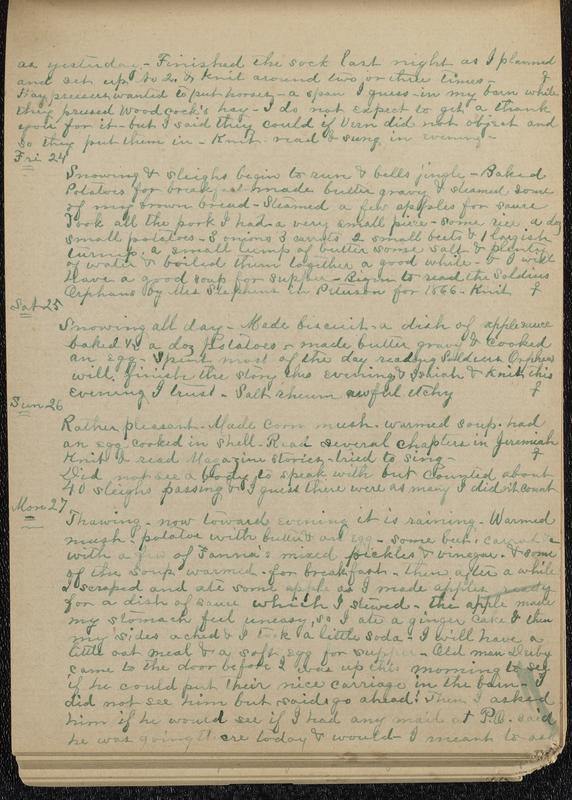 as yesterday - Finished the sock last night as I planned
and set up to 2. & knit around two or three times -
Hay pressers wanted to put horses - a span I guess - in my barn while
they pressed Woodcock's hay - I do not expect to get a thank
you for it - but I said they could if Vern did not object and
so they put them in - Knit read & sung in evening -
Fri 24
Snowing & sleighs begin to run & bells jingle - Baked
Potatoes for breakfast made butter gravy & steamed some
of my brown bread - Steamed a few apples for sauce
Took all the pork I had a very small piece - some rice a doz
small potatoes - 3 onions 3 carrots 2 small beets & 1 largish
turnip, a small lump of butter some salt & plenty
of water & boiled them together a good while - & I will
have a good soup for supper - Begin to read the Soldiers
Orphans by Mrs Stephens in Peterson for 1866 - Knit
Sat 25
Snowing all day - Made biscuit - a dish of apple sauce
baked ½ a doz potatoes - made butter gravy & cooked
an egg - Spent most of the day reading Soldiers Orphans
will finish the story this evening & Isaiah & knit this
evening I trust - Salt rheum awful itchy
Sun 26
Rather pleasant - Made corn mush - warmed soup - had
an egg cooked in shell - Read several chapters in Jeremiah
Knit & read Magazine stories - tried to sing -
Did not see a body to speak with but counted about
40 sleighs passing & I guess there were as many I did n't count
Mon 27
Thawing - now toward evening it is raining - Warmed
mush & potatoe with butter & an egg - some
with a few of Fannie's mixed pickles & vinegar & some
of the soup warmed - for breakfast - then after a while
I scraped and ate some apple as I made apples ready
for a dish of sauce which I stewed - the apple made
my stomach feel uneasy, so I ate a ginger cake & then
my sides ached & I took a little soda - I will have a
little oat meal & a soft egg for supper - Old man Derby
came to the door before I was up this morning to see
if he could put their nice carriage in the barn I
did not see him but said go ahead! Then I asked
him if he would see if I had any mail at P.O. said
he was going there today & would - I meant to ask